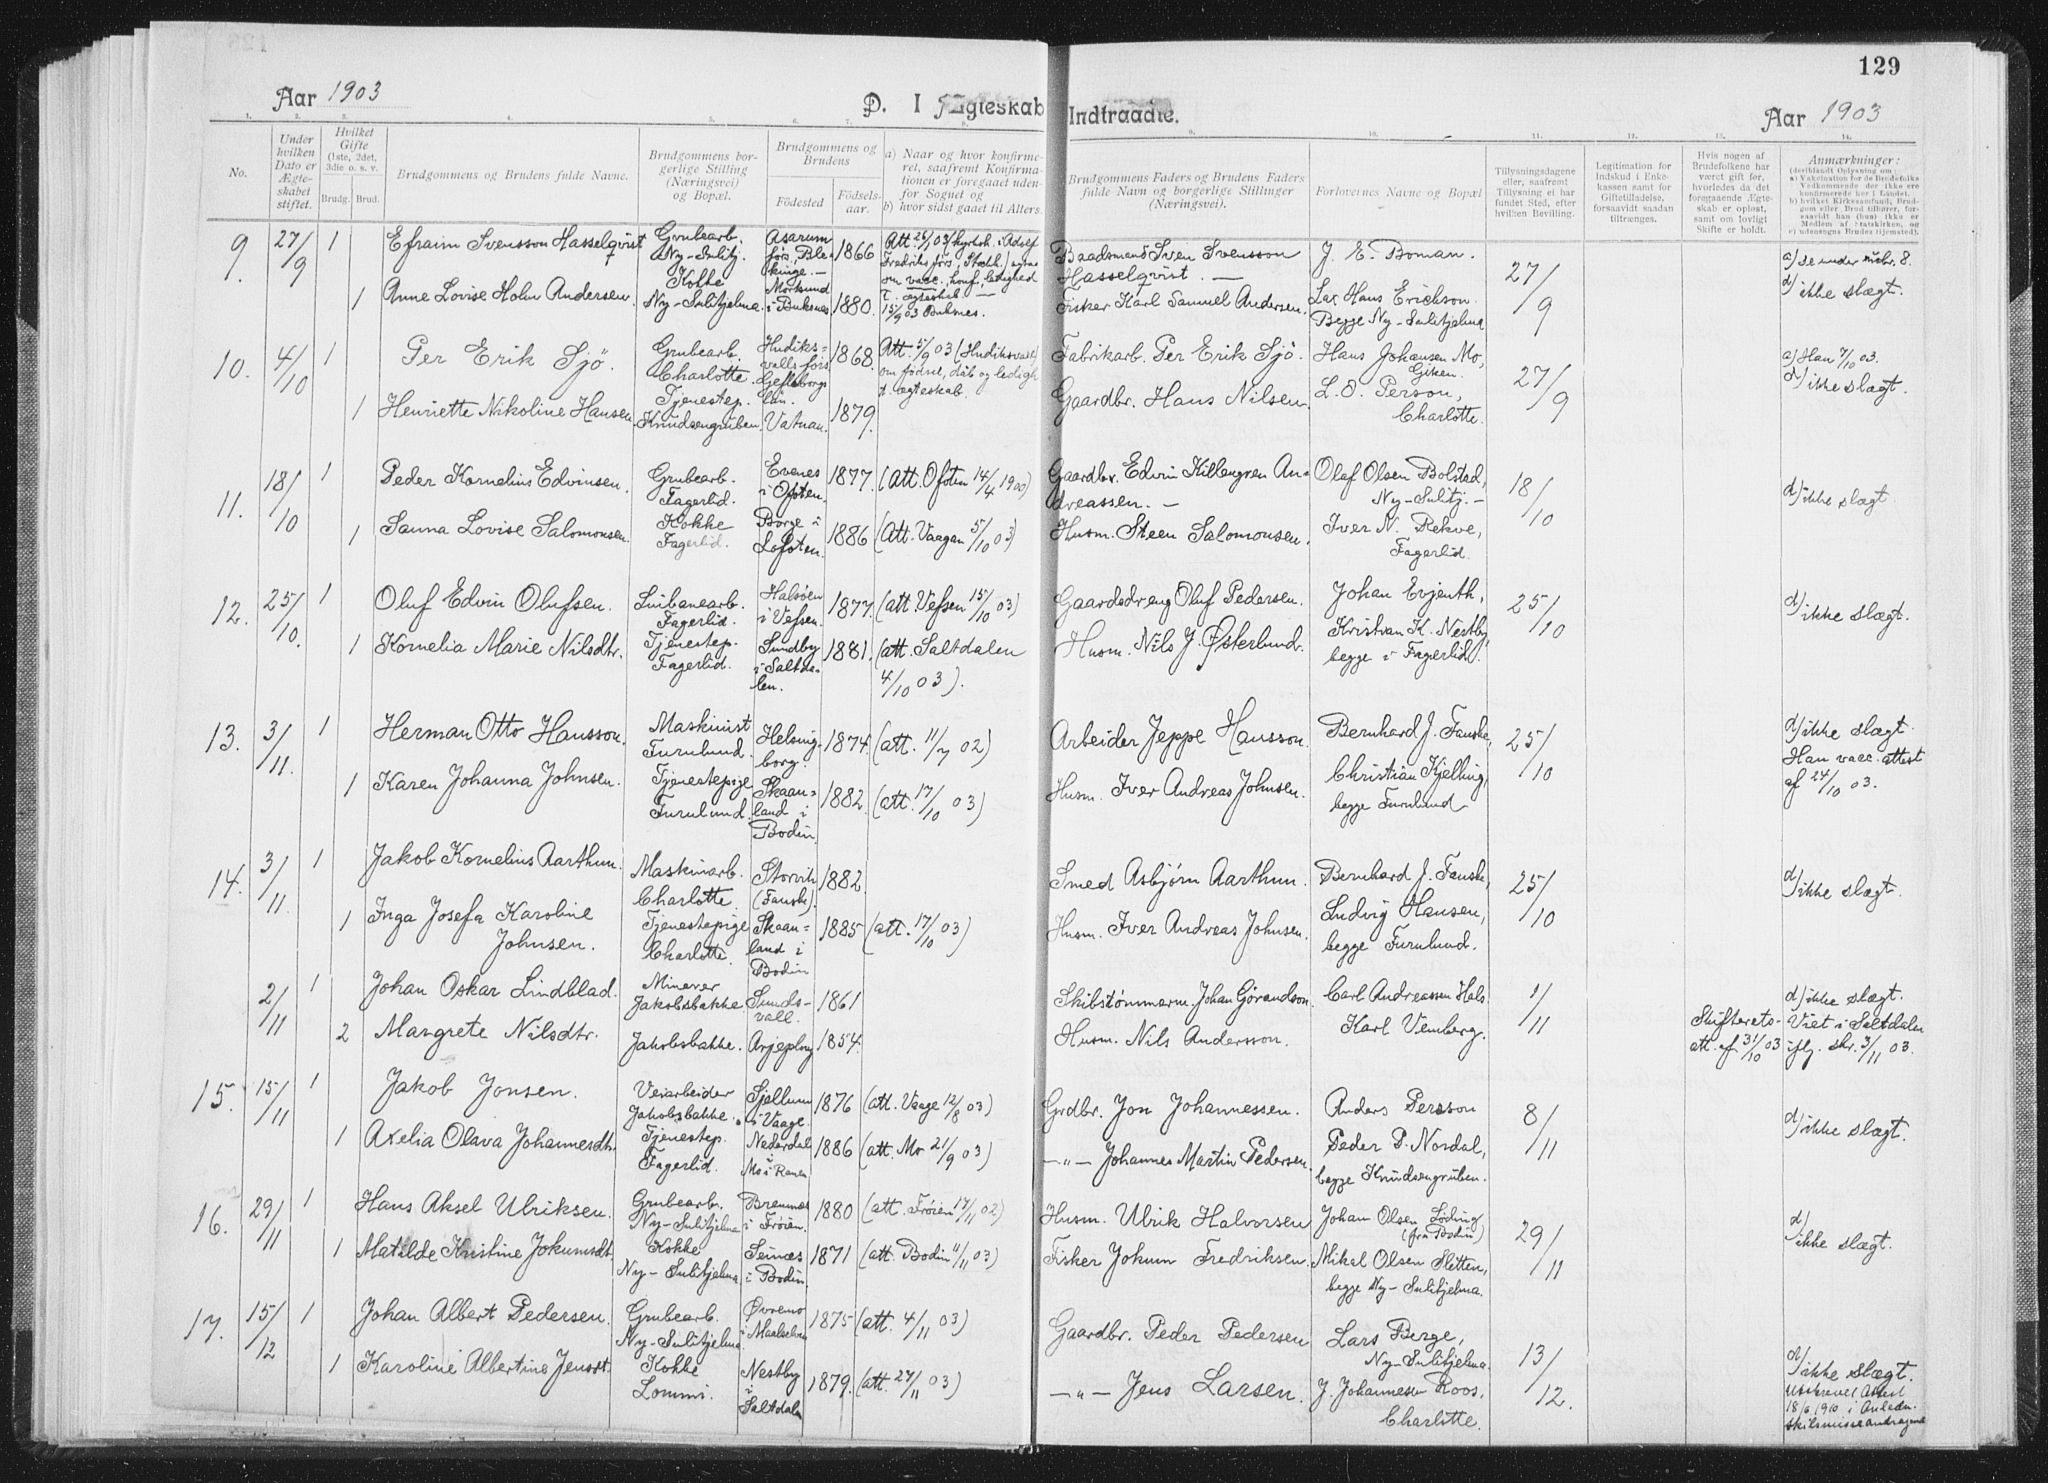 129
Aar 1903
D. I Ægteskab Indtraadte.
Aar 1903
1. 2. 3. 4. 5. 6. 7. 8. 9. 10. 11. 12. 13. 14.
No.
Under hvilken Dato er Ægteskabet stiftet.
Hvilket Gifte (1ste, 2det, 3die o. s. v.
Brudg. Brud.
Brudgommens og Brudens fulde Navne.
Brudgommens borgerlige Stilling (Næringsvei) og Bopæl.
Brudgommens og Brudens
Fødested
Fødselsaar.
a) Naar og hvor konfirmeret, saafremt Konfirmationen er foregaaet udenfor Sognet og
b) hvor sidst gaaet til Alters.
Brudgommens Faders og Brudens Faders fulde Navn og borgerlige Stillinger (Næringsvei).
Forlovernes Navne og Bopæl
Tillysningsdagene eller, saafremt Tillysning ei har fundet Sted, efter hvilken Bevilling.
Legitimation for Indskud i Enkekassen samt for Giftetilladelse, forsaavidt saadan tiltrænges.
Hvis nogen af Brudefolkene har været gift før, hvorledes da det foregaaende Ægteskab er opløst, samt om lovligt Skifte er holdt.
Anmærkninger:
(deriblandt Oplysning om:
a) Vakcination for de Brudefolks Vedkommende der ikke ere konfirmerede her i Landet.
b) hvilket Kirkesamfund, Brudgom eller Brud tilhører, forsaavidt han (hun) ikke er Medlem af Statskirken, og
c) udensogns Brudes Hjemsted).
9. 27/9 1 Efraim Svensson Hasselqvist Grubearb. Ny-Sulitj. Asarum förs, Blekinge. 1866 Att. 26/ 03 (kyrkoh. i Adolf Fredriks förs, Stockh.) om vacc., konf., ledighed t. ægteskab. Baadsmand Sven Svensson Hasselqvist. J. E. Boman. 27/9 a) se under nr. 8. d) ikke slægt.
1 Anne Lovise Holm Andersen. Kokke Ny-Sulitjelma. Mortsund i Buksnes 1880. 15/9 03 Buksnes. Fisker Karl Samuel Andersen. Lax Hans Erickson. Begge Ny-Sulitjelma
10. 4/10 1 Per Erik Sjö. Grubearb. Charlotte. Hudiksvalls förs. Gefleborgs län. 1868. Att. 5/9 03 (Hudiksvall) om fødsel, dåb og ledigh. t. ægteskab. Fabrikarb. Per Erik Sjö. Hans Johansen Mo, Giken. 27/9 a) Han 7/10 03. d) ikke slægt.
1 Henriette Nikoline Hansen. Tjenestep. Knudsengruben. Vatnan. 1879. Gaardbr. Hans Nilsen. L. E. Person, Charlotte.
11. 18/10 1 Peder Kornelius Edvinsen. Grubearb. Fagerlid. Evenes i Ofoten. 1877. (Att. Ofoten 14/4 1900) Gaardbr. Edvin Killengren Andreassen. Olaf Olsen Bolstad, Ny-Sulitj. 18/10 d) ikke slægt
1 Sanna Lovise Salomonsen. Kokke Fagerlid. Borge i Lofoten. 1886 (Att. Vaagan 5/10 03) Husm. Steen Salomonsen. Iver N. Rekve, Fagerlid.
12. 25/10. 1 Oluf Edvin Olufsen. Linbanearb. Fagerlid. Halsöen i Vefsen. 1877. (att. Vefsen 15/10 03) Gaardsdreng Oluf Pedersen. Johan Evjenth, 25/10 d) ikke slægt.
1 Kornelia Marie Nilsdtr. Tjenestep. Fagerlid. Sundby i Saltdalen. 1881. (att. Saltdalen 4/10 03). Husm. Nils J. Østerlund. Kristian K. Nestby, begge i Fagerlid.
13. 3/11. 1 Herman Otto Hansson. Maskinist Furulund. Helsingborg. 1874. (att. 11/7 02) Arbeider Jeppe Hansson. Bernhard J. Fauske, 25/10 d) ikke slægt. Han vacc. attest af 24/10 03.
1 Karen Johanna Johnsen. Tjenestepige Furulund. Skaanland i Bodin. 1882. (att. 17/10 03) Husm. Iver Andreas Johnsen. Christian Kjelling, begge Furulund
14. 3/11. 1 Jakob Kornelius Aarthun. Maskinarb. Charlotte. Storvik (Fauske). 1882. Smed Asbjørn Aarthun. Bernhard J. Fauske, 25/10 d) ikke slægt.
1 Inga Josefa Karoline Johnsen. Tjenestepige Charlotte. Skaanland i Bodin 1885 (att. 17/10 03) Husm. Iver Andreas Johnsen. Ludvig Hansen, begge Furulund.
2/11 1 Johan Oskar Lindblad. Minerer Jakobsbakke. Sundsvall. 1861 Skibstömmerm. Johan Göransson. Carl Andreassen Hals. 1/11 d) ikke slægt.
2 Margrete Nilsdtr. Jakobsbakke. Arjeplog 1854. Husm. Nils Andersson. Karl Vemberg. Skifterets-att. af 31/10 03 Viet i Saltdalen iflg. skr. 3/11 03.
15. 15/11 1 Jakob Jonsen. Veiarbeider Jakobsbakke. Sjellum i Vaage. 1876 (att. Vaage 12/8 03) Grdbr. Jon Johannessen. Anders Persson 8/11 d) ikke slægt.
1 Axelia Olava Johannesdtr. Tjenestep. Fagerlid. Nederdal i Mo i Ranen 1886 (att. Mo 21/9 03) —„— Johannes Martin Pedersen. Peder P. Nordal, begge Knudsengruben.
16. 29/11 1 Hans Aksel Ulriksen. Grubearb. Ny-Sulitjelma Bremnes i Frøien. 1880 (att. Frøien 17/11 02) Husm. Ulrik Halvorsen Johan Olsen Løding (fra Bodin) 29/11 d) ikke slægt.
1 Matilde Kristine Jokumsdt. Kokke Ny-Sulitjelma Seines i Bodin. 1871 (att. Bodin 11/11 03) Fisker Jokum Fredriksen. Mikal Olsen Sletten, begge Ny-Sulitjelma.
17. 15/12 1 Johan Albert Pedersen. Grubearb. Ny-Sulitjelma. Øvremo i Maalselven 1875 (att. 4/11 03) Gaardbr. Peder Pedersen Lars Berge, Ny-Sulitjelma. 13/12. d) ikke slægt.
1 Karoline Albertine Jensdt. Kokke Lommi. Nestby i Saltdalen 1879. (att. 27/11 03) —„— Jens Larsen. J. Johannesen Roos, Charlotte. Udskrevet Attest 18/6 1910 i Anledn. Skilsmisseandragende